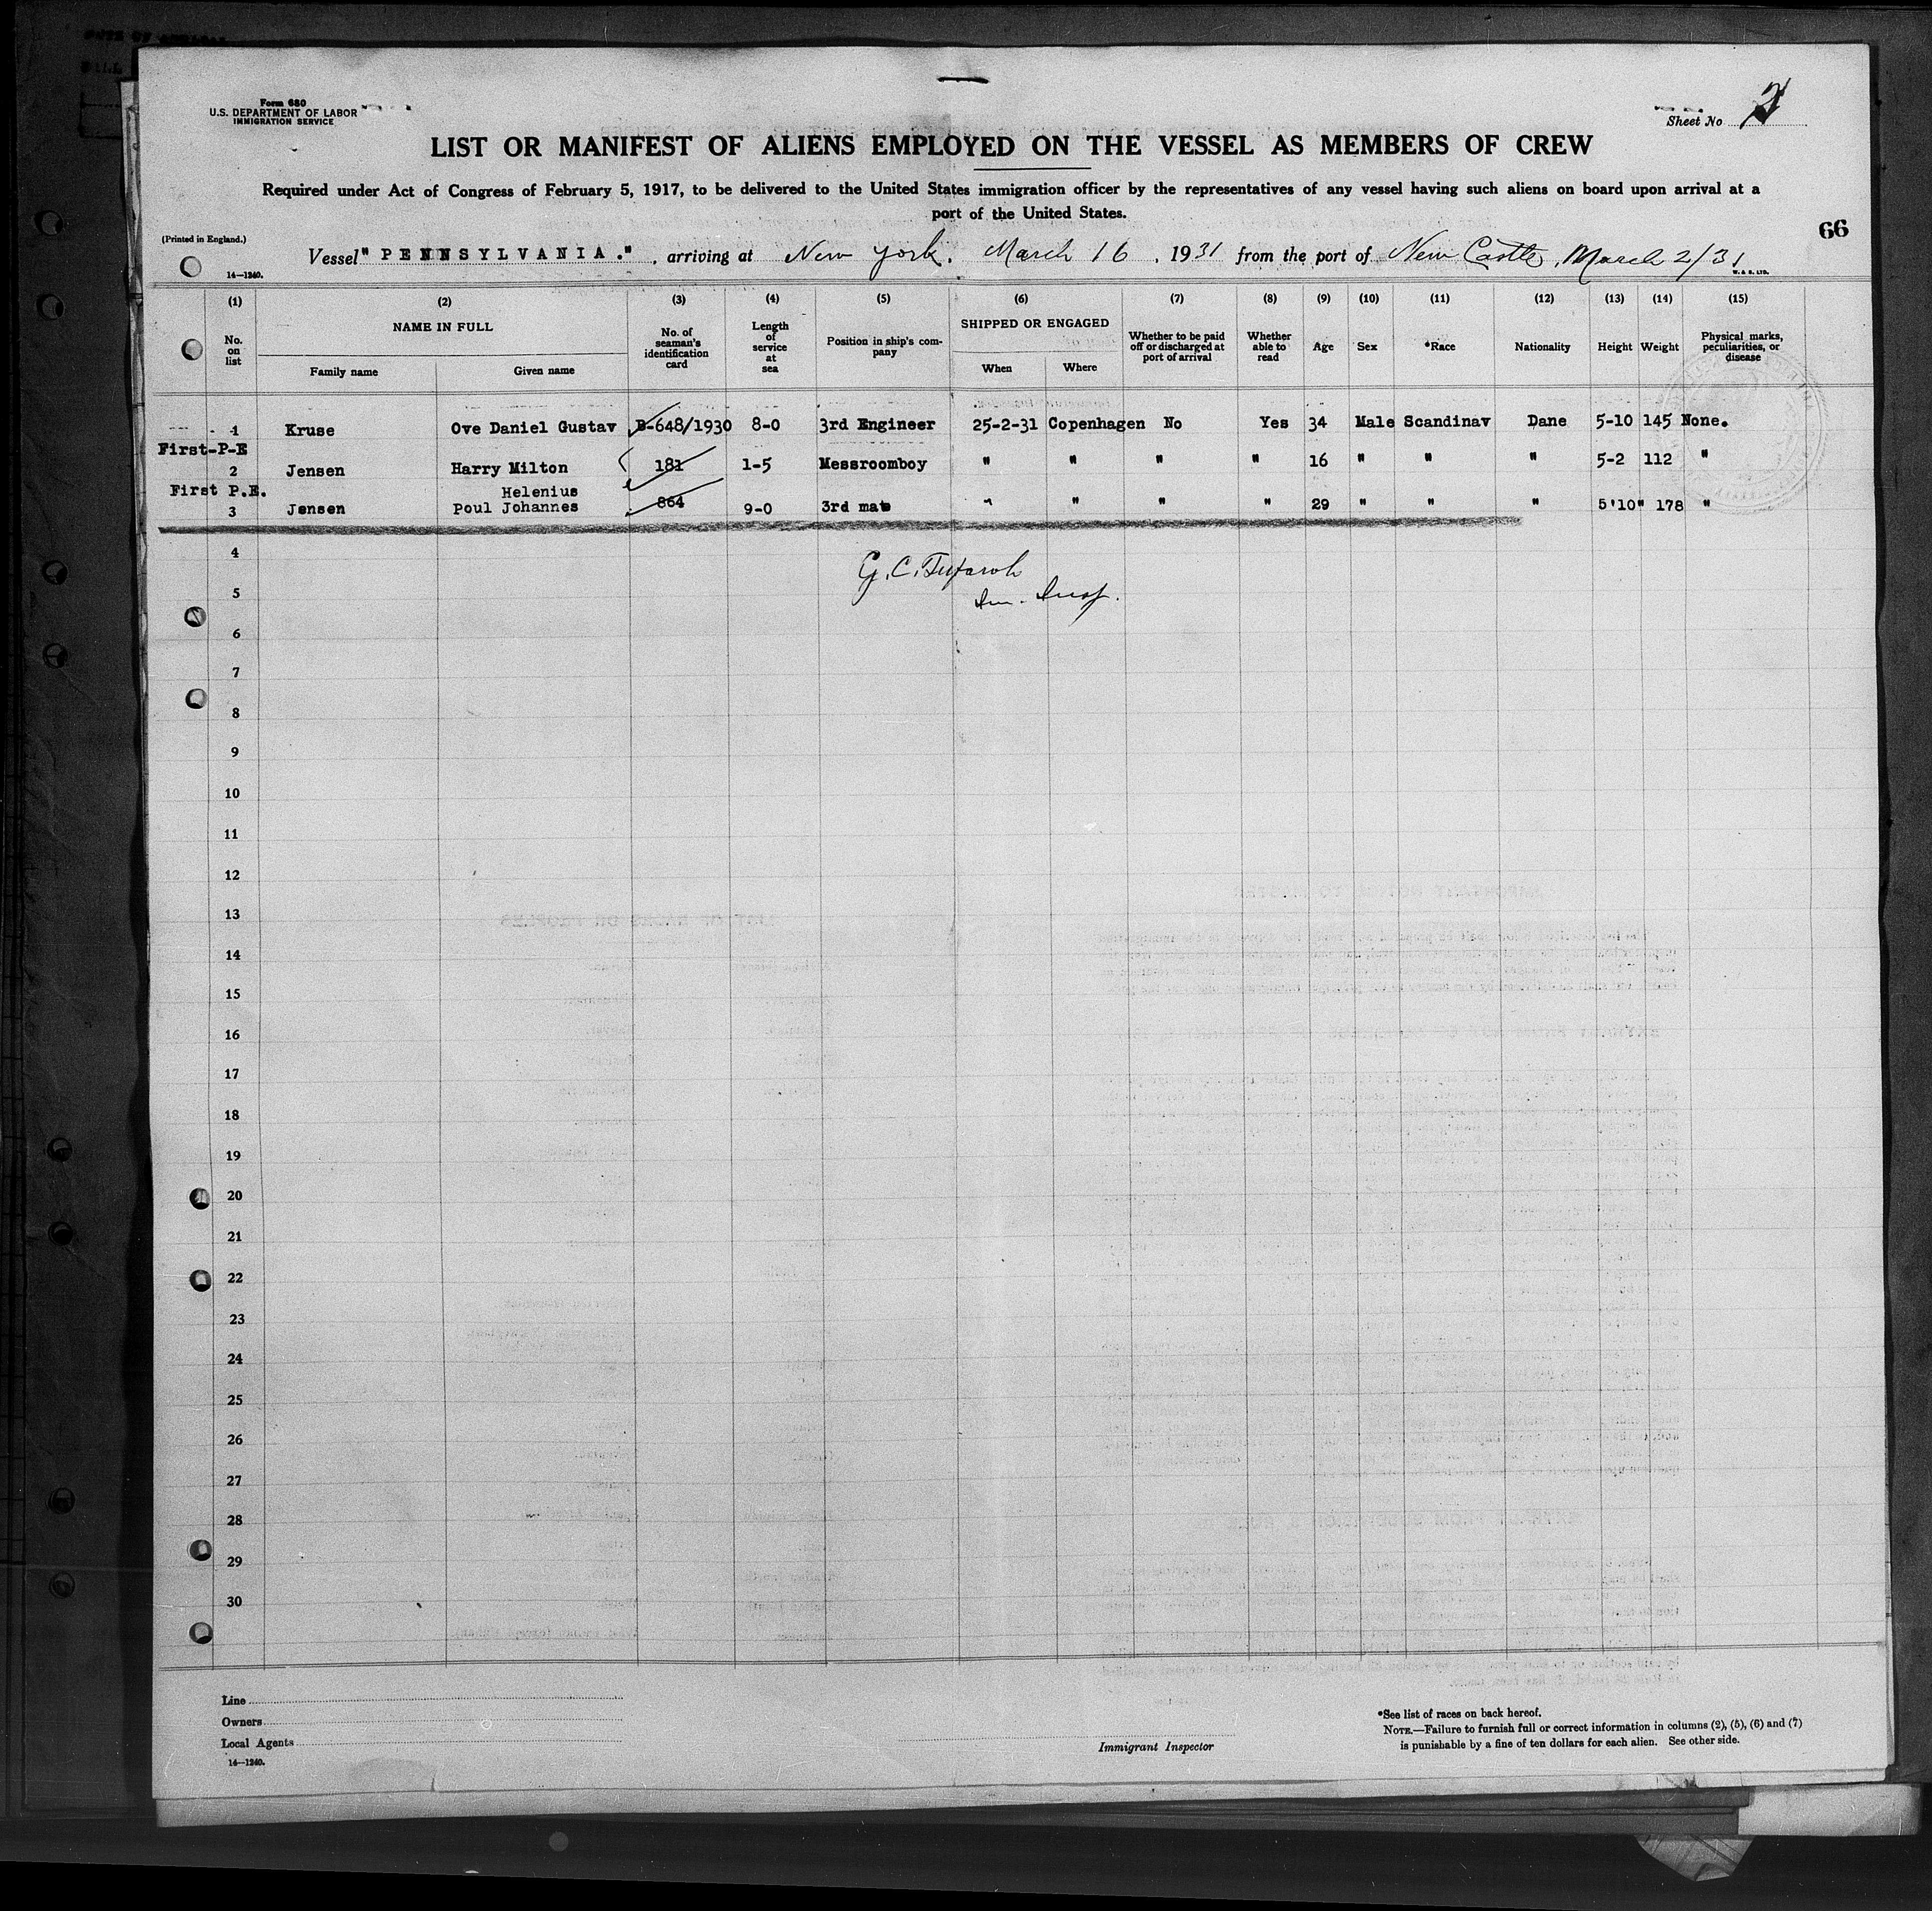 Form 680
U.S. DEPARTMENT OF LABOR
IMMIGRATION SERVICE
Sheet No
LIST OR MANIFEST OF ALIENS EMPLOYED ON THE VESSEL AS MEMBERS OF CREW
Required under Act of Congress of February 5, 1917, to be delivered to the United States immigration officer by the representatives of any vessel having such aliens on board upon arrival at a
port of the United States.
66
(Printed in England.)
Vessel " PENNSYLVANIA ." , arriving at New York, March 16 , 1931 from the port of New Castle, March 2/31
14—1240.
W. & S. LTD.
(1) (2) (3) (4) (5) (6) (7) (8) (9) (10) (11) (12) (13) (14) (15)
No. on list
NAME IN FULL
Family name Given name
No. of seaman's identification card
Length of service at sea
Position in ship's company
SHIPPED OR ENGAGED
When Where
Whether to be paid off or discharged at port of arrival
Whether able to read
Age Sex *Race Nationality Height Weight
Physical marks, peculiarities, or disease
1 Kruse Ove Daniel Gustav B-648/1930 8-0 3rd Engineer 25-2-31 Copenhagen No Yes 34 Male Scandinav Dane 5-10 145 None.
First-P-E
2 Jensen Harry Milton 181 1-5 Messroomboy " " " " 16 " " " 5-2 112 "
First P.E. Helenius
3 Jensen Poul Johannes 864 9-0 3rd mate " " " " 29 " " " 5'10" 178 "
4
G. C.
5
Im. Insp.
6
7
8
9
10
11
12
13
14
15
16
17
18
19
20
21
22
23
24
25
26
27
28
29
30
Line
Owners
Local Agents
14—1240.
Immigrant Inspector
*See list of races on back hereof.
NOTE.—Failure to furnish full or correct information in columns (2), (5), (6) and (7)
is punishable by a fine of ten dollars for each alien. See other side.